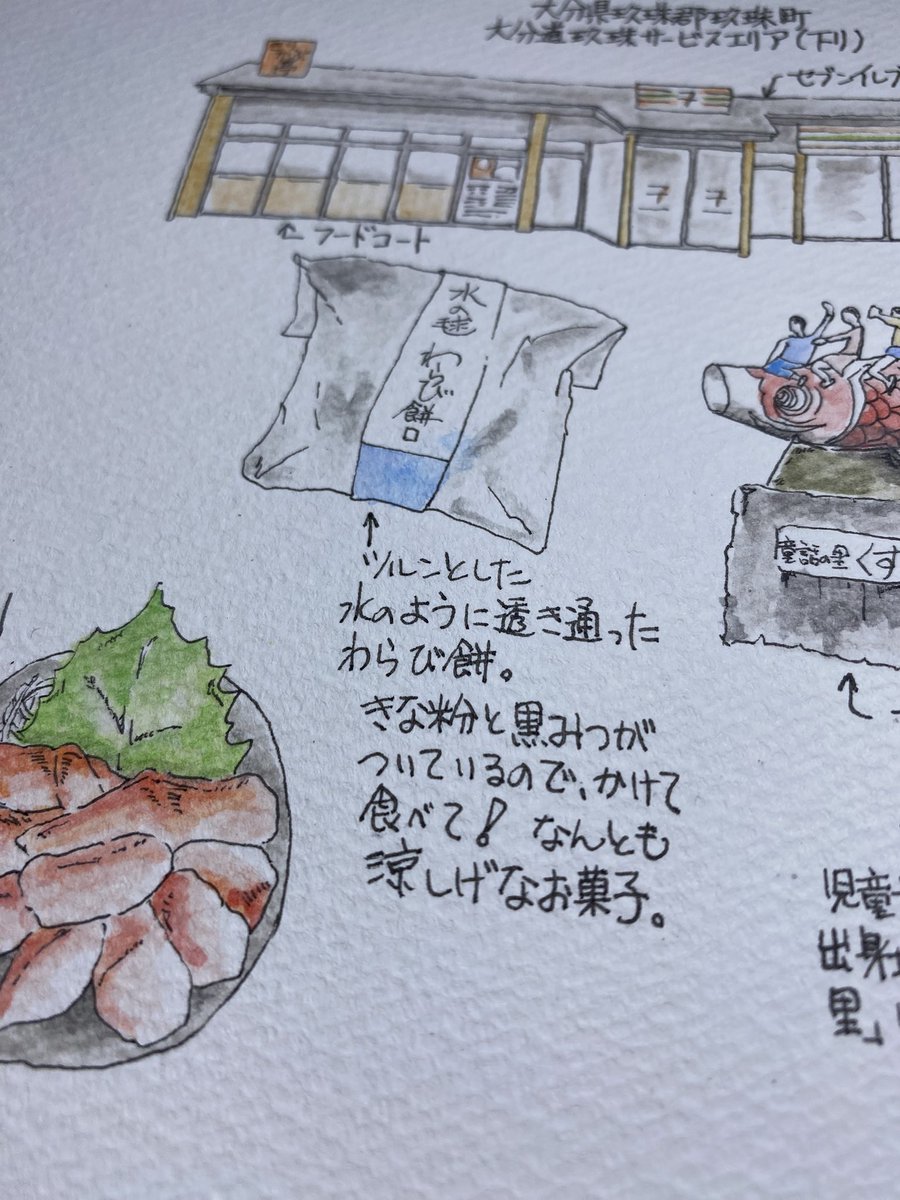 大分県玖珠郡玖珠町
大分道玖珠サービスエリア(下り)
セブンイレブ
7
7 7
フードコート
水の毬 わらび餅
ツルンとした
水のように透き通った
わらび餅。
きな粉と黒みつが
ついているので、かけて
食べて! なんとも
涼しげなお菓子。
童話の里 くす
児童
出身
里」